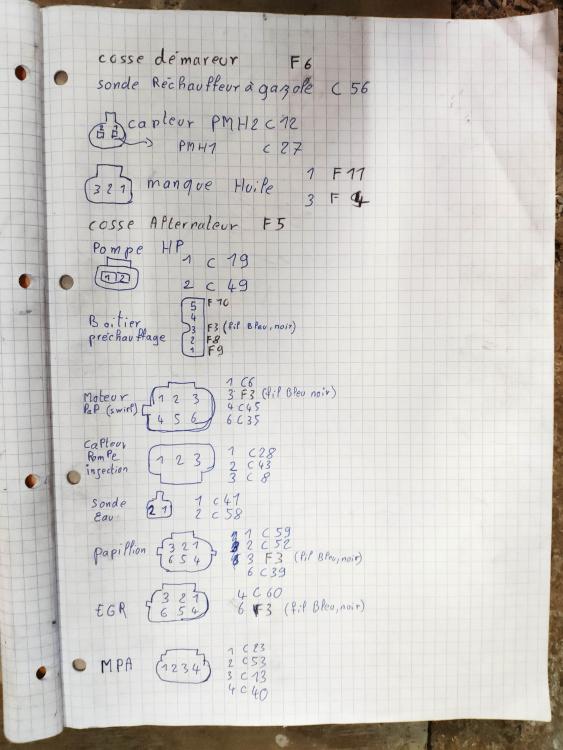 cosse démareur F6
sonde Réchauffeur à gazole C 56
capteur PMH2 C 12
PMH1 C 27
3 2 1 manque Huile 1 F 11
3 F 4
cosse Alternateur F5
Pompe HP 1 C 19
1 2
2 C 49
Boitier préchauffage
5 F10
4
3 F3 (fil Bleu, noir)
2 F8
1 F9
Moteur PaP (swirl)
1 2 3
4 5 6
1 C6
3 F3 (fil Bleu noir)
4 C45
6 C35
Capteur Pompe injection
1 2 3
1 C28
2 C43
3 C8
Sonde Eau
2 1
1 C41
2 C58
papillion
3 2 1
6 5 4
1 C59
2 C52
3 F3 (fil Bleu, noir)
6 C39
EGR
3 2 1
6 5 4
4 C60
6 F3 (fil Bleu, noir)
MPA
1 2 3 4
1 C23
2 C53
3 C13
4 C40